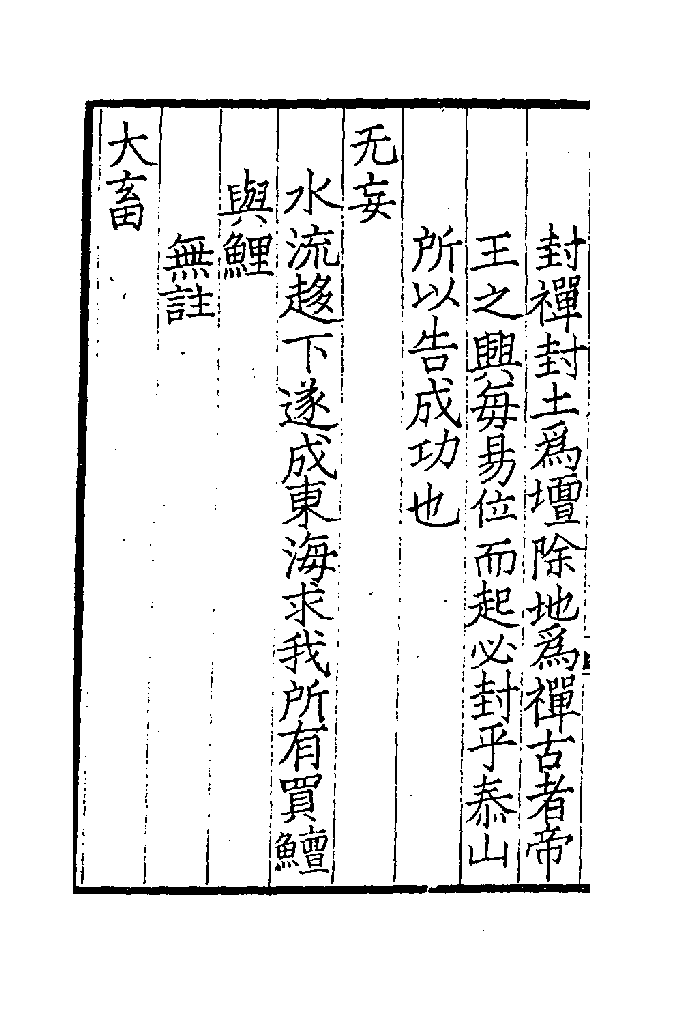 封禪封土爲壇除地爲禪古者帝
王之興每易位而起必封乎泰山
所以告成功也
无妄
水流趍下遂成東海求我所有買鱣
與鯉
無註
大畜